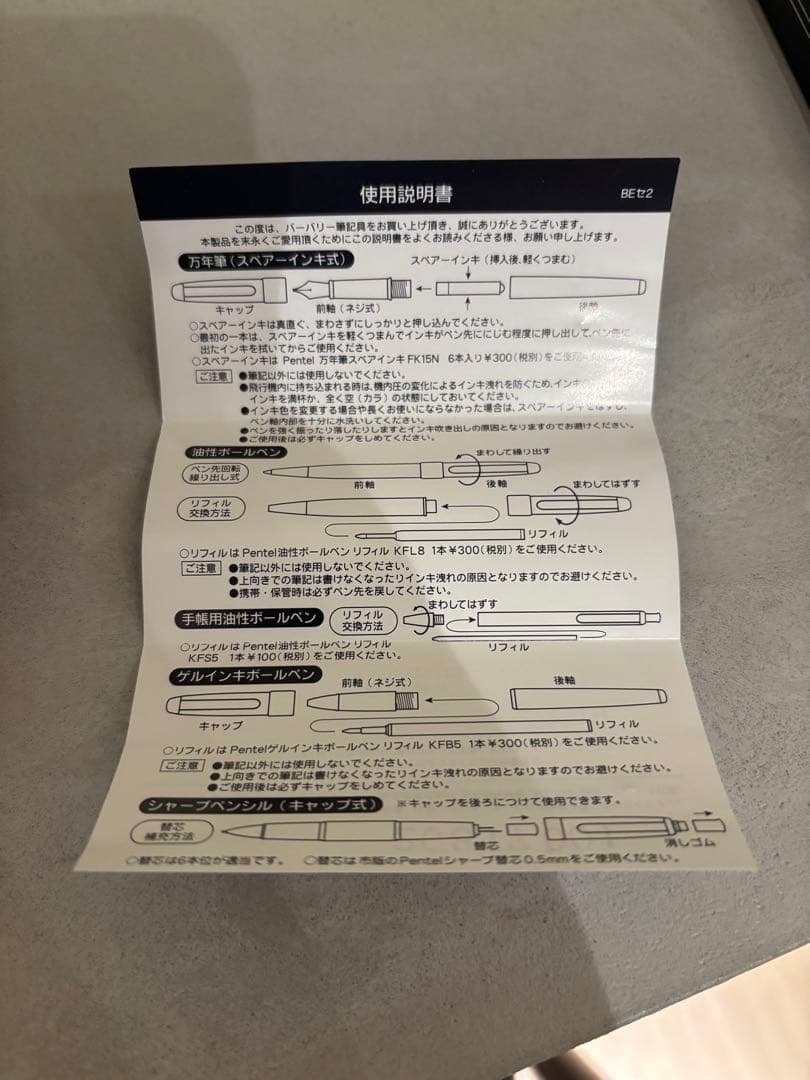 使用説明書
BEセ2
この度は、バーバリー筆記具をお買い上げ頂き、誠にありがとうございます。
本製品を末永くご愛用頂くためにこの説明書をよくお読みくださる様、お願い申し上げます。
万年筆(スペアーインキ式)
スペアーインキ(挿入後、軽くつまむ)
キャップ
前軸(ネジ式)
後軸
○スペアーインキは真直ぐ、まわさずにしっかりと押し込んでください。
○最初の一本は、スペアーインキを軽くつまんでインキがペン先ににじむ程度に押し出して、ペン先に
出たインキを拭いてからご使用ください。
○スペアーインキは Pentel 万年筆スペアインキ FK15N 6本入り¥300(税別)をご使用
ご注意
●筆記以外には使用しないでください。
●飛行機内に持ち込まれる時は、機内圧の変化によるインキ洩れを防ぐため、インキ
インキを満杯か、全く空(カラ)の状態にしておいてください。
●インキ色を変更する場合や長くお使いにならなかった場合は、スペアーインキをはずし、
ペン軸内部を十分に水洗いしてください。
●ペンを強く振ったり落したりしますとインキ吹き出しの原因となりますのでお避けください。
●ご使用後は必ずキャップをしめてください。
油性ボールペン
まわして繰り出す
ペン先回転
繰り出し式
前軸
後軸
まわしてはずす
リフィル
交換方法
リフィル
○リフィルは Pentel油性ボールペン リフィル KFL8 1本¥300(税別)をご使用ください。
ご注意
●筆記以外には使用しないでください。
●上向きでの筆記は書けなくなったりインキ洩れの原因となりますのでお避けください。
●携帯・保管時は必ずペン先を戻してください。
手帳用油性ボールペン
リフィル
交換方法
まわしてはずす
リフィル
○リフィルは Pentel油性ボールペン リフィル
KFS5 1本¥100(税別)をご使用ください。
ゲルインキボールペン
前軸(ネジ式)
後軸
キャップ
リフィル
○リフィルは Pentelゲルインキボールペン リフィル KFB5 1本¥300(税別)をご使用ください。
ご注意
●筆記以外には使用しないでください。
●上向きでの筆記は書けなくなったりインキ洩れの原因となりますのでお避けください。
●ご使用後は必ずキャップをしめてください。
シャープペンシル(キャップ式)
※キャップを後ろにつけて使用できます。
替芯
補充方法
替芯
消しゴム
○替芯は6本位が適当です。 ○替芯は市販のPentelシャープ替芯0.5mmをご使用ください。